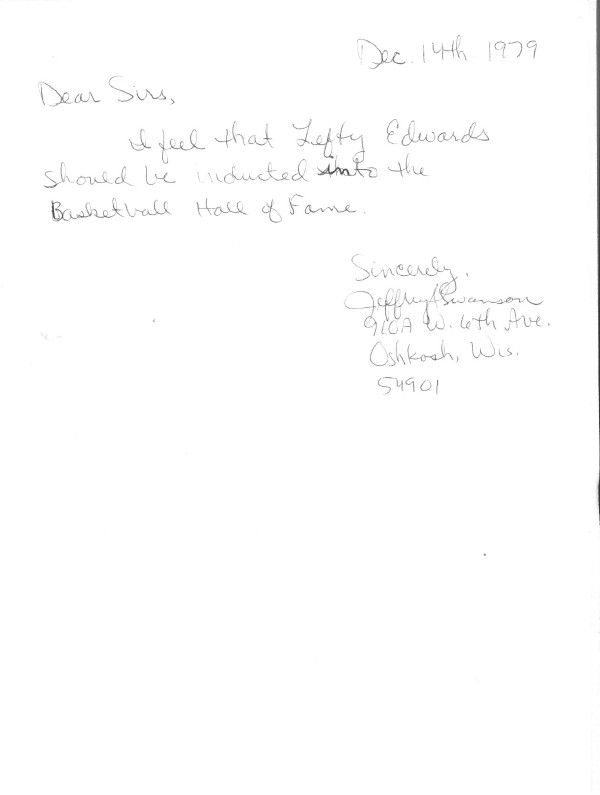 Dec. 14th 1979
Dear Sirs,
I feel that Lefty Edwards
should be inducted into the
Basketball Hall of Fame.
Sincerely,
Jeffrey Swanson
910A W. 6th Ave.
Oshkosh, Wis.
54901